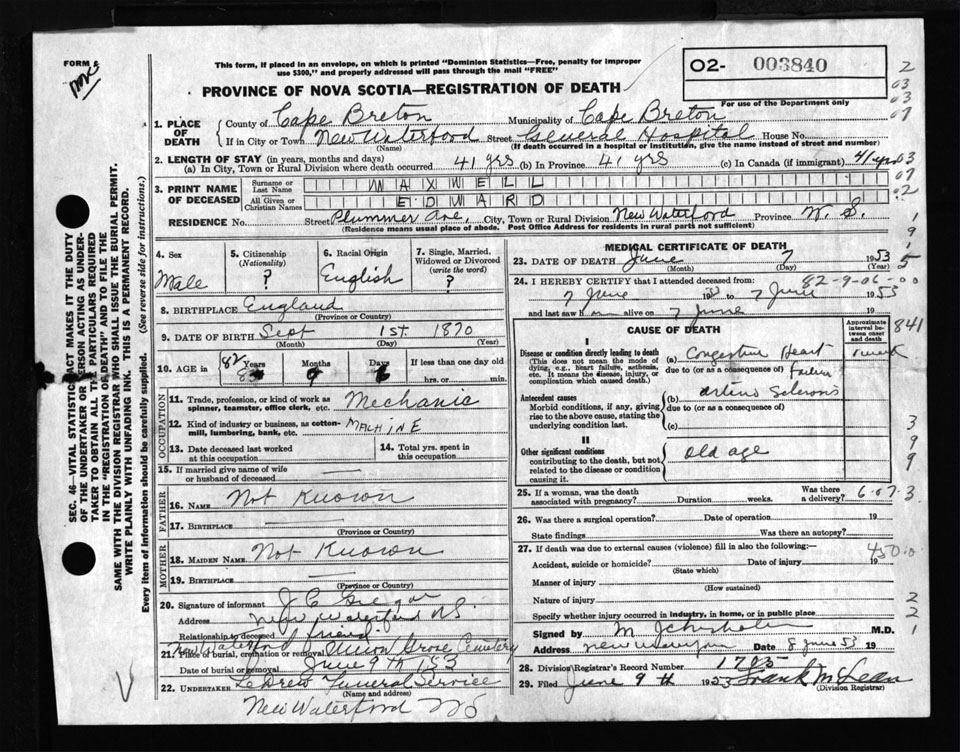 FORM 5
This form, if placed in an envelope, on which is printed "Dominion Statistics—Free, penalty for improper
use $300," and properly addressed will pass through the mail "FREE"
O2- 003840
For use of the Department only
PROVINCE OF NOVA SCOTIA—REGISTRATION OF DEATH
1. PLACE OF DEATH
County of Cape Breton Municipality of Cape Breton
If in City or Town New Waterford Street General Hospital House No.
(Name) (If death occurred in a hospital or institution, give the name instead of street and number)
2. LENGTH OF STAY (in years, months and days)
(a) In City, Town or Rural Division where death occurred 41 yrs (b) In Province 41 yrs (c) In Canada (if immigrant) 41 yrs
3. PRINT NAME OF DECEASED
Surname or Last Name MAXWELL
All Given or Christian Names EDWARD
RESIDENCE No. Street Plummer Ave, City, Town or Rural Division New Waterford Province N. S.
(Residence means usual place of abode. Post Office Address for residents in rural parts not sufficient)
4. Sex Male
5. Citizenship (Nationality) ?
6. Racial Origin English
7. Single, Married, Widowed or Divorced (write the word) ?
8. BIRTHPLACE England
(Province or Country)
9. DATE OF BIRTH Sept 1st 1870
(Month) (Day) (Year)
10. AGE in 82 Years Months Days If less than one day old
hrs. or min.
OCCUPATION
11. Trade, profession, or kind of work as
spinner, teamster, office clerk, etc. Mechanic
12. Kind of industry or business, as cotton-
mill, lumbering, bank, etc. MACHINE
13. Date deceased last worked
at this occupation
14. Total yrs. spent in
this occupation
15. If married give name of wife
or husband of deceased
FATHER
16. NAME Not Known
17. BIRTHPLACE
(Province or Country)
MOTHER
18. MAIDEN NAME Not Known
19. BIRTHPLACE
(Province or Country)
20. Signature of informant J C
Address New Waterford NS.
Relationship to deceased friend
New Waterford
21. Place of burial, cremation or removal Union Grove Cemetery
Date of burial or removal June 9th 153
22. UNDERTAKER LeDrew Funeral Service
(Name and address)
New Waterford NS
MEDICAL CERTIFICATE OF DEATH
23. DATE OF DEATH June 7 1953
(Month) (Day) (Year)
82-9-06-00
24. I HEREBY CERTIFY that I attended deceased from:
7 June 1953 to 7 June 1953
and last saw him alive on 7 June
CAUSE OF DEATH
Approximate interval between onset and death
I
Disease or condition directly leading to death
(This does not mean the mode of
dying, e.g., heart failure, asthenia,
etc. It means the disease, injury, or
complication which caused death.)
(a) Congestive Heart 1 week
due to (or as a consequence of) Failure
Antecedent causes
Morbid conditions, if any, giving
rise to the above cause, stating the
underlying condition last.
(b) arterio Sclerosis
due to (or as a consequence of)
(c)
II
Other significant conditions
contributing to the death, but not
related to the disease or condition
causing it.
old age
25. If a woman, was the death
associated with pregnancy? Duration weeks. Was there a delivery? 6-07-3
26. Was there a surgical operation? Date of operation 19
State findings Was there an autopsy?
27. If death was due to external causes (violence) fill in also the following:—
Accident, suicide or homicide? Date of injury 19
(State which)
450.0
Manner of injury
(How sustained)
Nature of injury
Specify whether injury occurred in industry, in home, or in public place
Signed by M. D.
Address Date 8 June 53 19
28. Division Registrar's Record Number 1705
29. Filed June 9th 1953 Frank McLean
(Division Registrar)
SEC. 46—VITAL STATISTICS ACT MAKES IT THE DUTY
OF THE UNDERTAKER OR PERSON ACTING AS UNDER-
TAKER TO OBTAIN ALL THE PARTICULARS REQUIRED
IN THE "REGISTRATION OF DEATH" AND TO FILE THE
SAME WITH THE DIVISION REGISTRAR WHO SHALL ISSUE THE BURIAL PERMIT.
WRITE PLAINLY WITH UNFADING INK. THIS IS A PERMANENT RECORD.
Every item of information should be carefully supplied. (See reverse side for instructions.)
2
03
03
07
03
07
02
1
9
5
841
3
9
9
2
2
1